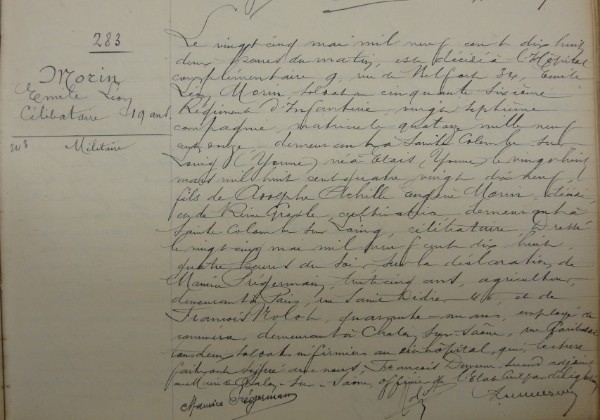 283
Morin
Emile Léon
Célibataire 19 ans
Militaire
Le vingt cinq mai mil neuf cent dix huit
deux heures du matin, est décédé à l'Hôpital
complémentaire 9, rue de Belfort 34, Emile
Léon Morin, soldat au cinquante sixième
Régiment d'Infanterie, vingt septième
compagnie, matricule quatorze mille neuf
cent onze, demeurant à Sainte Colombe sur
Loing (Yonne) né à Etais (Yonne) le vingt huit
mars mil huit cent quatre vingt dix neuf,
fils de Adolphe Achille Eugène Morin, décédé,
et de, cultivatrice, demeurant à
Sainte Colombe sur Loing, célibataire. Dressé
le vingt cinq mai mil neuf cent dix huit,
quatre heures du soir, sur la déclaration de
Maurice Trégermann, trente cinq ans,
demeurant à Paris, rue Saint, et de
François, quarante ans, employé de
commerce, demeurant à Chalon sur Saône, rue
tous deux soldats infirmiers au dit hôpital, qui, lecture
faite, ont signé avec nous, François, adjoint
au Maire de Chalon sur Saône, officier de l'Etat Civil par délégation
Maurice Trégermann